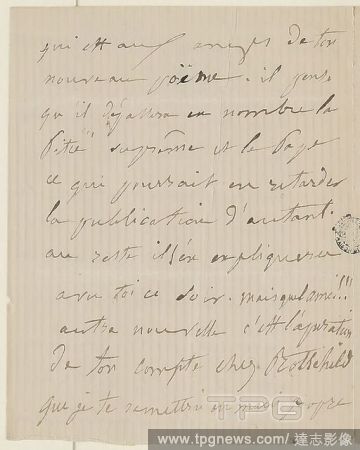 qui est aux anges de ton
nouveau poëme. il pense
qu'il dépassera en nombre la
Pitié suprême et le Pape
ce qui pourrait en retarder
la publication d'autant.
au reste il s'en expliquera
avec toi ce soir. mais quel ami!!!
autre nouvelle c'est l'apuration
de ton compte chez Rothschild
que je te remettrai en main propre
TPG
www.tpgnews.com / 達志影像